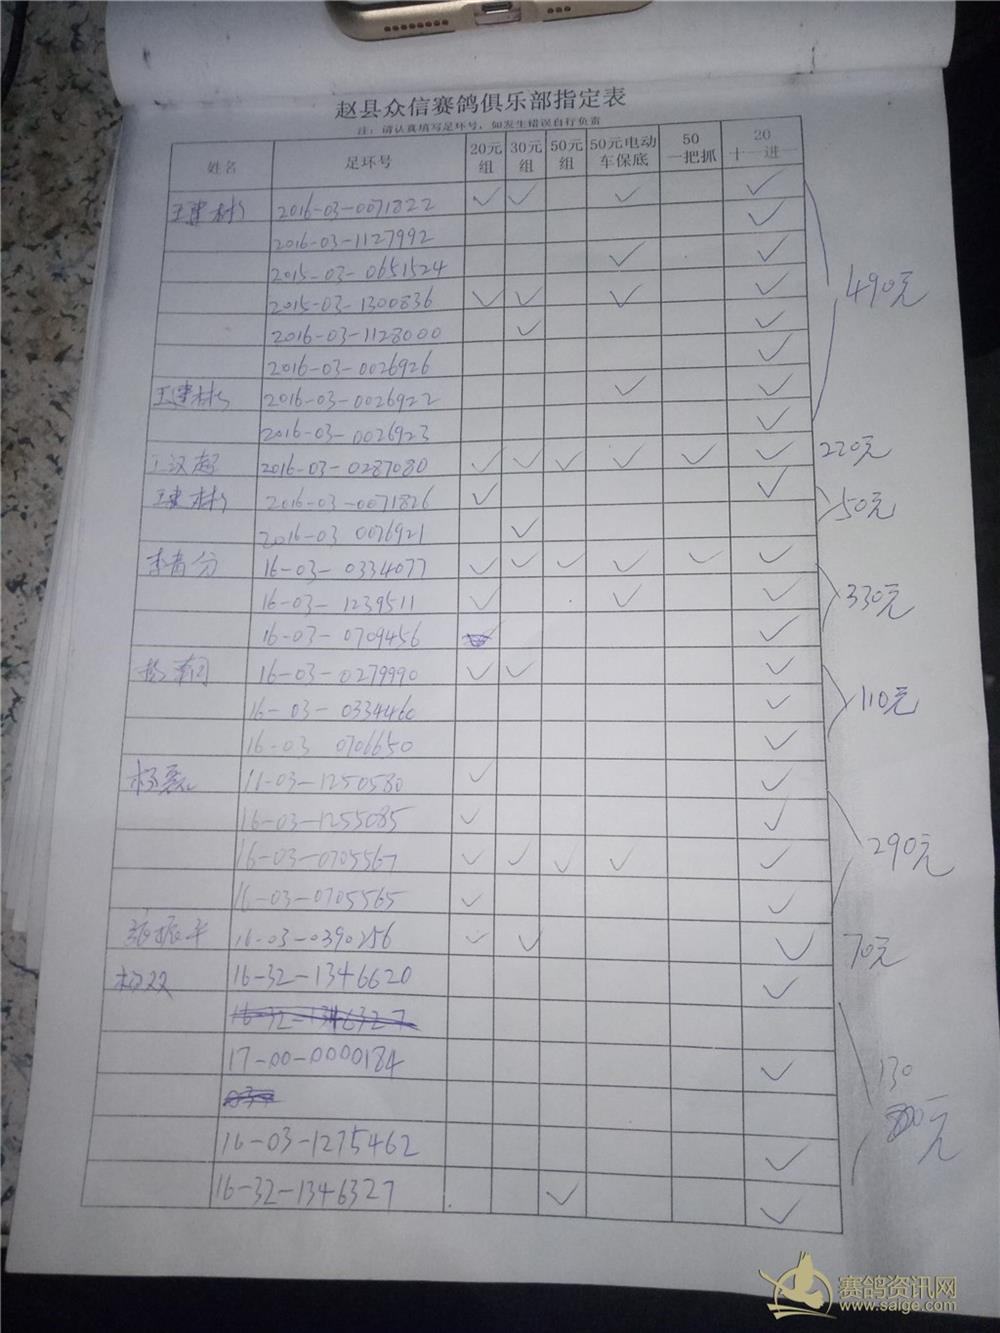 赵县众信赛鸽俱乐部指定表
注：请认真填写足环号，如发生错误自行负责
姓名 足环号 20元组 30元组 50元组 50元电动车保底 50一把抓 20十一进一
王建彬 2016-03-0071822 ✓ ✓ ✓ ✓
2016-03-1127992 ✓
2015-03-0651524 ✓ ✓
2015-03-1300836 ✓ ✓ ✓ ✓
490元
2016-03-1128000 ✓ ✓
2016-03-0026926 ✓
王建彬 2016-03-0026922 ✓ ✓
2016-03-0026923 ✓
2016-03-0287080 ✓ ✓ ✓ ✓ ✓ ✓ 220元
王建彬 2016-03-0071826 ✓ ✓
50元
2016-03 0076921 ✓
16-03-0334077 ✓ ✓ ✓ ✓ ✓ ✓
16-03-1239511 ✓ ✓ ✓ 330元
16-03-0709456 ✓
16-03-0279990 ✓ ✓ ✓
16-03-0334460 ✓ 110元
16-03 0706650 ✓
11-03-1250580 ✓ ✓
16-03-1255085 ✓ ✓
16-03-0705567 ✓ ✓ ✓ ✓ ✓ 290元
16-03-0705565 ✓ ✓
张振平 16-03-0390256 ✓ ✓ ✓ 70元
杨双 16-32-1346620 ✓
16-32-1346327
17-00-0000184 ✓ 130
元
16-03-1275462 ✓
16-32-1346327 ✓ ✓
赛鸽资讯网
www.saige.com